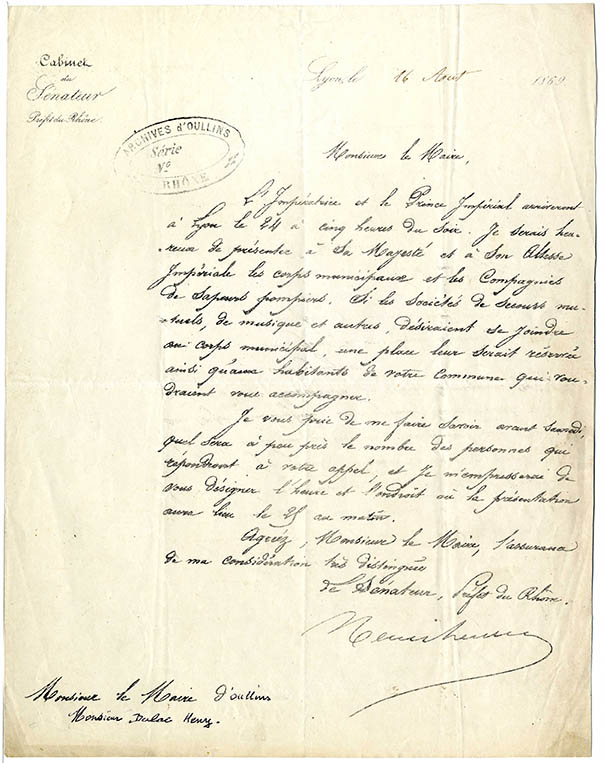 Cabinet
du
Sénateur
Préfet du Rhône.
Lyon, le 16 Aout 1869
ARCHIVES d'OULLINS
Série
No
RHÔNE
Monsieur le Maire,
L'Impératrice et le Prince Impérial arriveront
à Lyon le 24 à cinq heures du soir. Je serais heu-
reux de présenter à Sa Majesté et à Son Altesse
Impériale les corps municipaux et les Compagnies
de Sapeurs pompiers. Si les sociétés de secours mu-
-tuels, de musique et autres, désiraient se joindre
au corps municipal, une place leur serait réservée
ainsi qu'aux habitants de votre commune qui vou-
draient vous accompagner.
Je vous prie de me faire savoir avant samedi,
quel sera à peu près le nombre des personnes qui
répondront à votre appel, et je m'empresserai de
vous désigner l'heure et l'endroit où la présentation
aura lieu le 25 au matin.
Agréez, Monsieur le Maire, l'assurance
de ma considération très distinguée
Le Sénateur, Préfet du Rhône.
Monsieur le Maire d'oullins
Monsieur Dulac Henry.